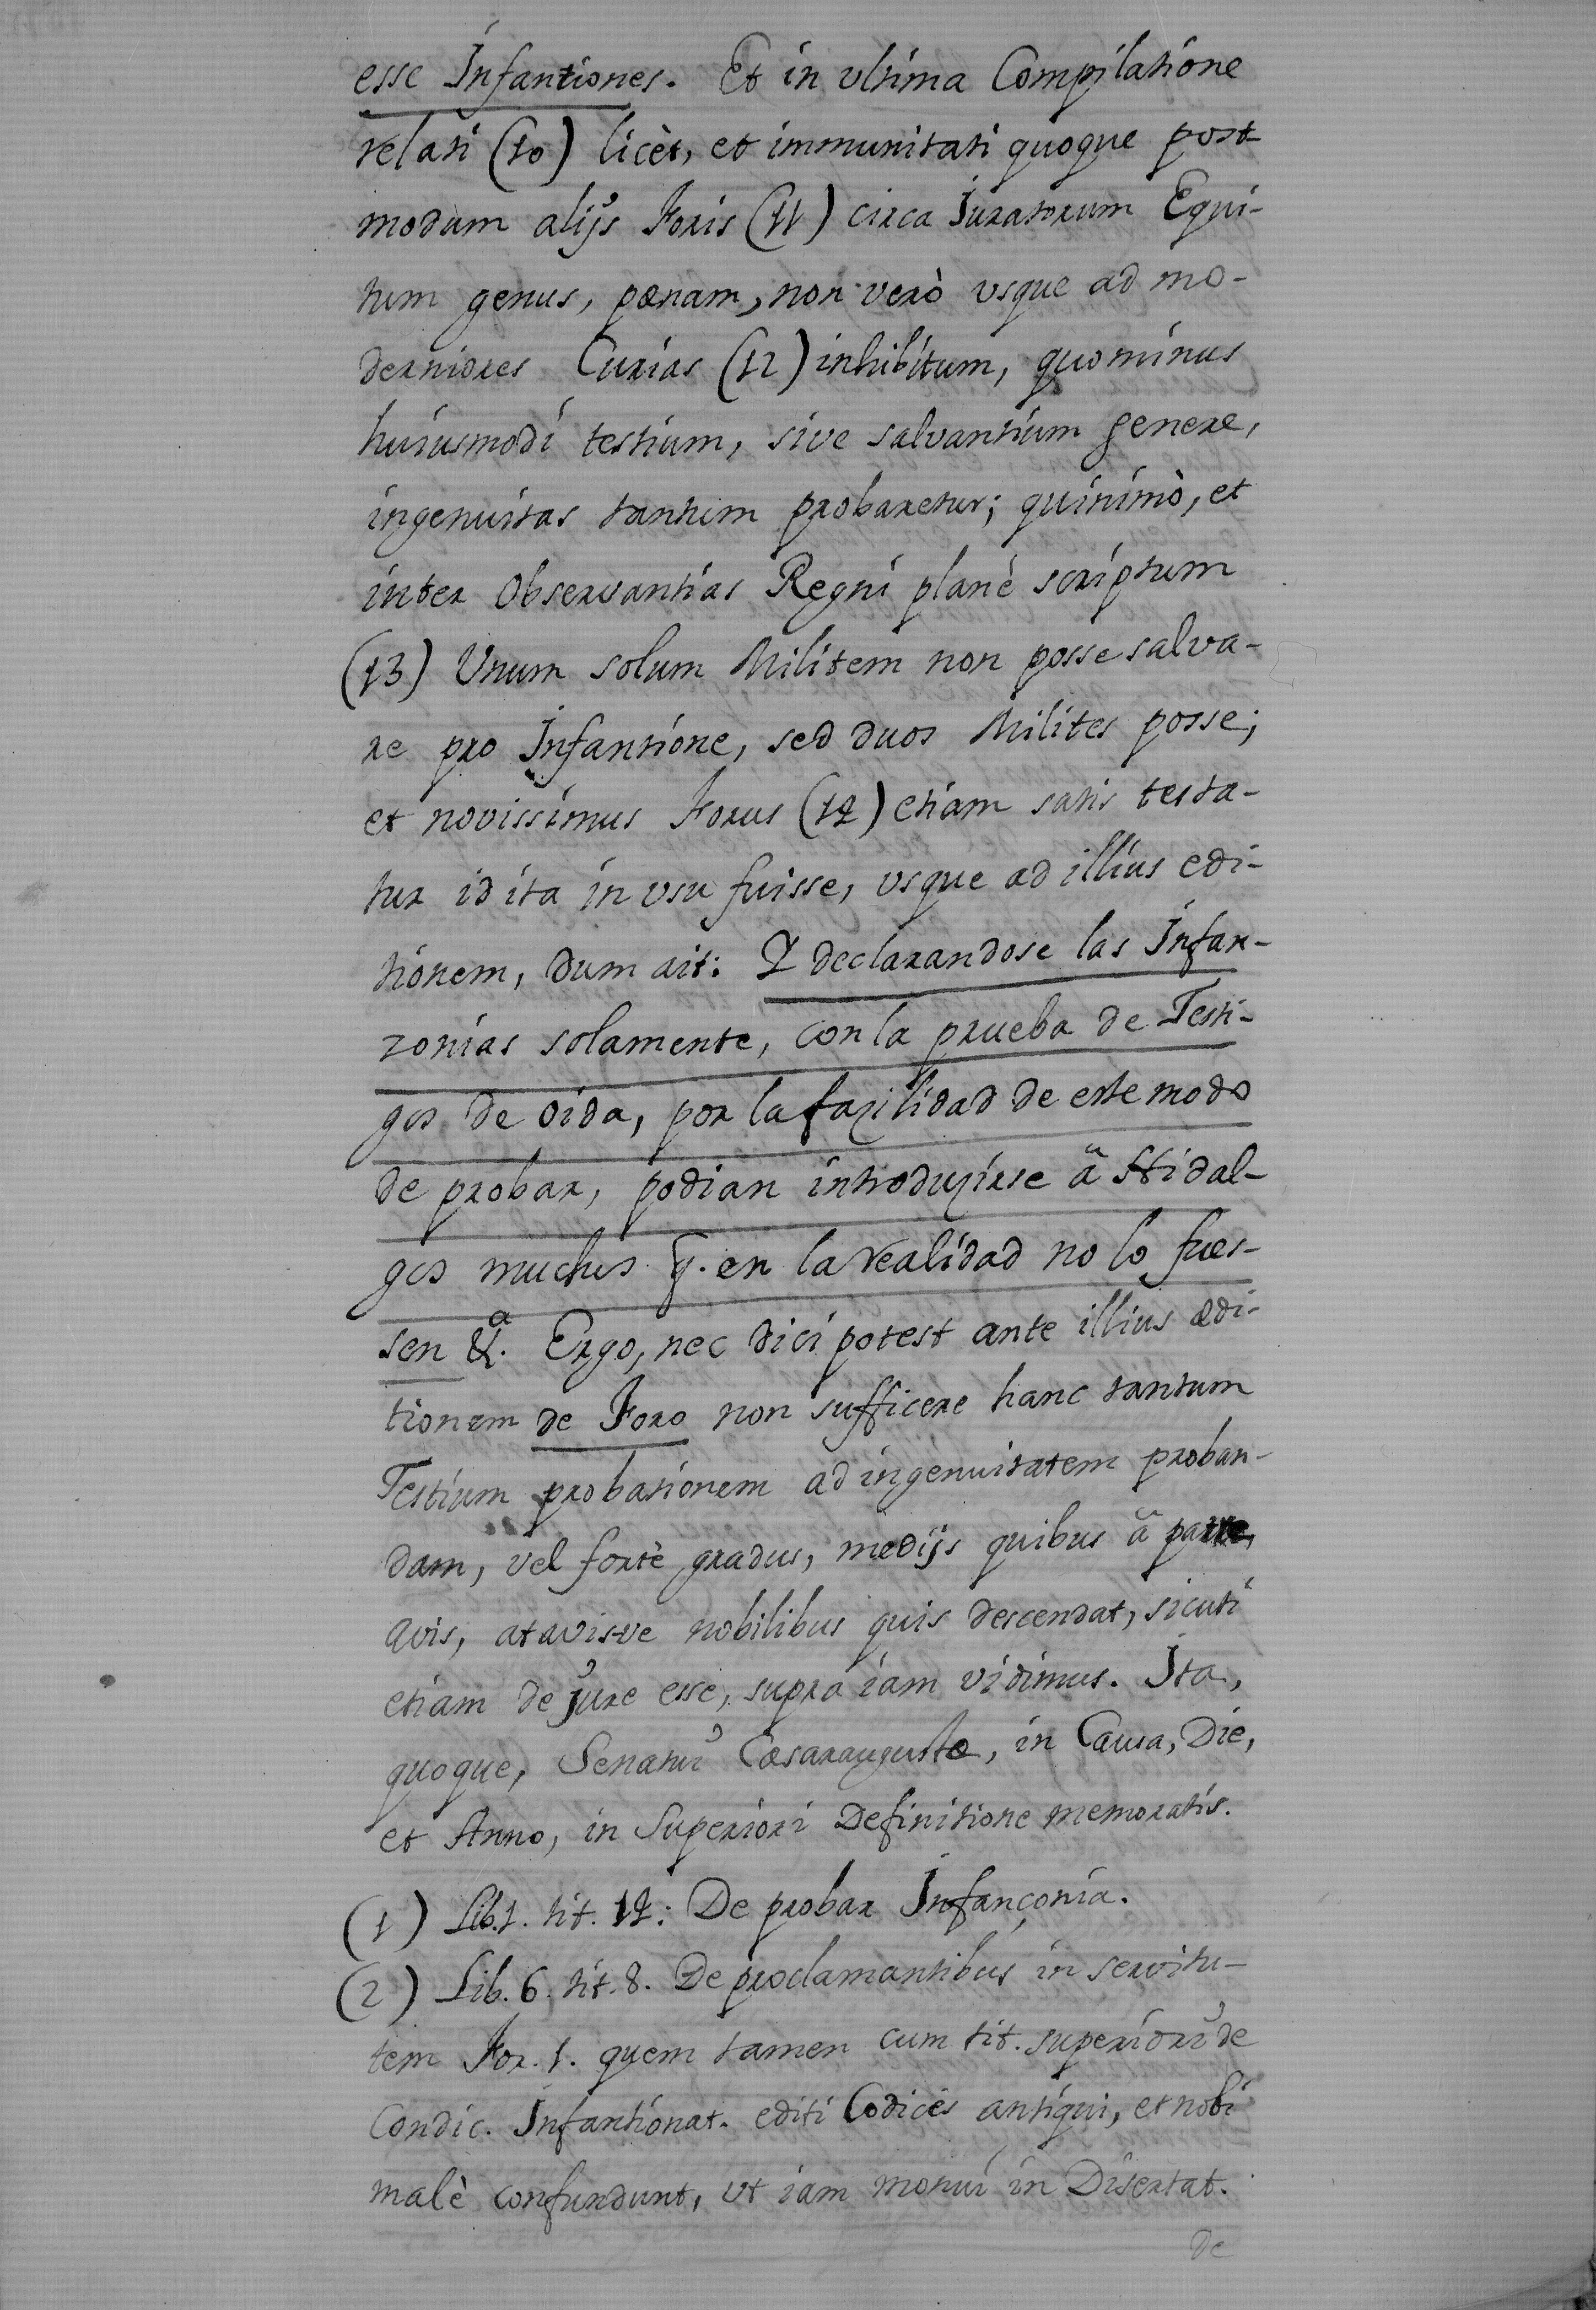 esse Infantiones. Et in vltima Compilatione
relati (10) licèt, et immunitati quoque post
modum alijs Foris (11) circa Juratorum Equi-
tum genus, pœnam, non verò vsque ad mo-
derniores Curias (12) inhibitum, quominus
huiusmodi testium, sive salvantium genere,
ingenuitas tantum probaretur; quinimò, et
inter Observantias Regni planè scriptum
(13) Vnum solum Militem non posse salva-
re pro Infantione, sed duos Milites posse;
et novissimus Forus (14) etiam satis testa-
tur id ita in vsu fuisse, vsque ad illius edi-
tionem, dum ait: Y declarandose las Infan-
zonias solamente, con la prueba de Testi-
gos de oida, por la fazilidad de este modo
de probar, podian introduzirse â Hidal-
gos muchos q̃. en la realidad no lo fues-
sen &a. Ergo, nec dici potest ante illius ædi-
tionem de Foro non sufficere hanc tantum
Testium probationem ad ingenuitatem proban-
dam, vel fortè gradus, medijs quibus â patre,
avis, atavisve nobilibus quis descendat, sicuti
etiam de Jure esse, supra iam vidimus. Ita,
quoque, Senatui Cæsaraugustæ, in Causa, Die,
et Anno, in Superiori Definitione memoratis.
(1) Lib. 1. tit. 14: De probar Infançonia.
(2) Lib. 6. tit. 8. De proclamantibus in servitu-
tem For. 1. quem tamen cum tit. superiori de
Condic. Infantionat. editi Codices antiqui, et nobi
malè confundunt, vt iam monui in Disertat.
de